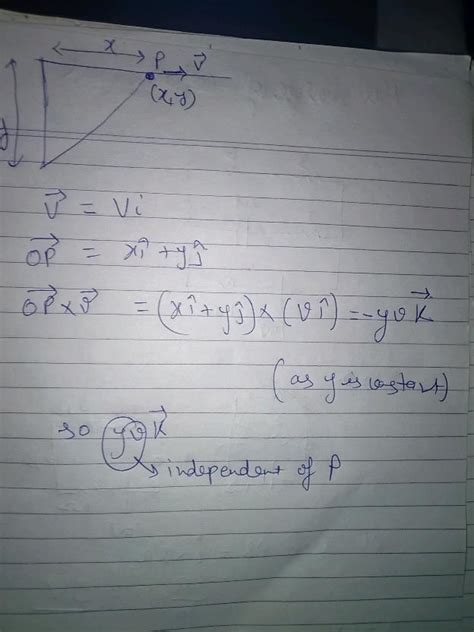 x
P
V⃗
(x, y)
y
V⃗ = Vi
OP⃗ = xî + yĵ
OP⃗ × v⃗ = (xî + yĵ) × (vî) = -yvK⃗
(as y is constant)
so yvK⃗
→ independent of P